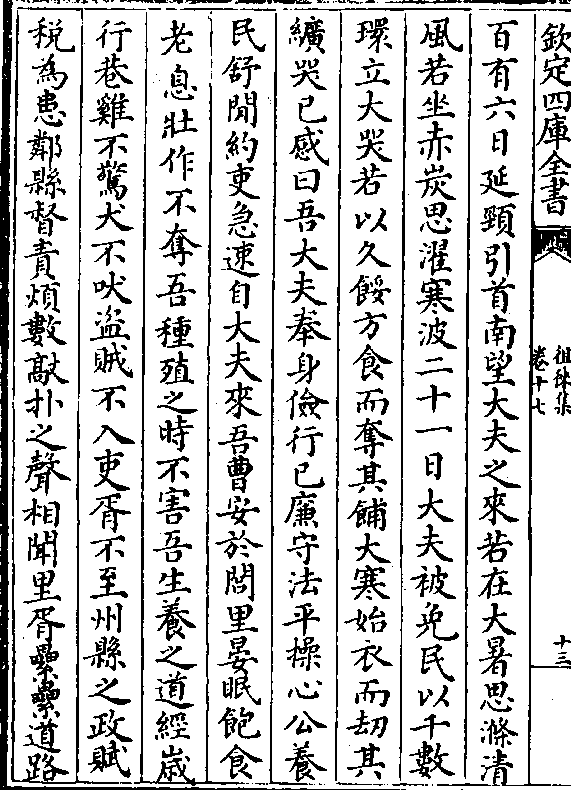 欽定四庫全書
徂徠集
卷十七
十三
百有六日延頸引首南望大夫之來若在大暑思滌清
風若坐赤炭思濯寒波二十一日大夫被免民以千數
環立大哭若以久餒方食而奪其餔大寒始衣而刼其
纊哭已感曰吾大夫奉身儉行已廉守法平操心公養
民舒聞約吏急速自大夫來吾曹安於閭里晏眠飽食
老息壯作不奪吾種殖之時不害吾生養之道經歳
行巷雞不驚犬不吠盜賊不入吏胥不至州縣之政賦
税為患鄰縣督責煩數敲扑之聲相聞里胥纍纍道路